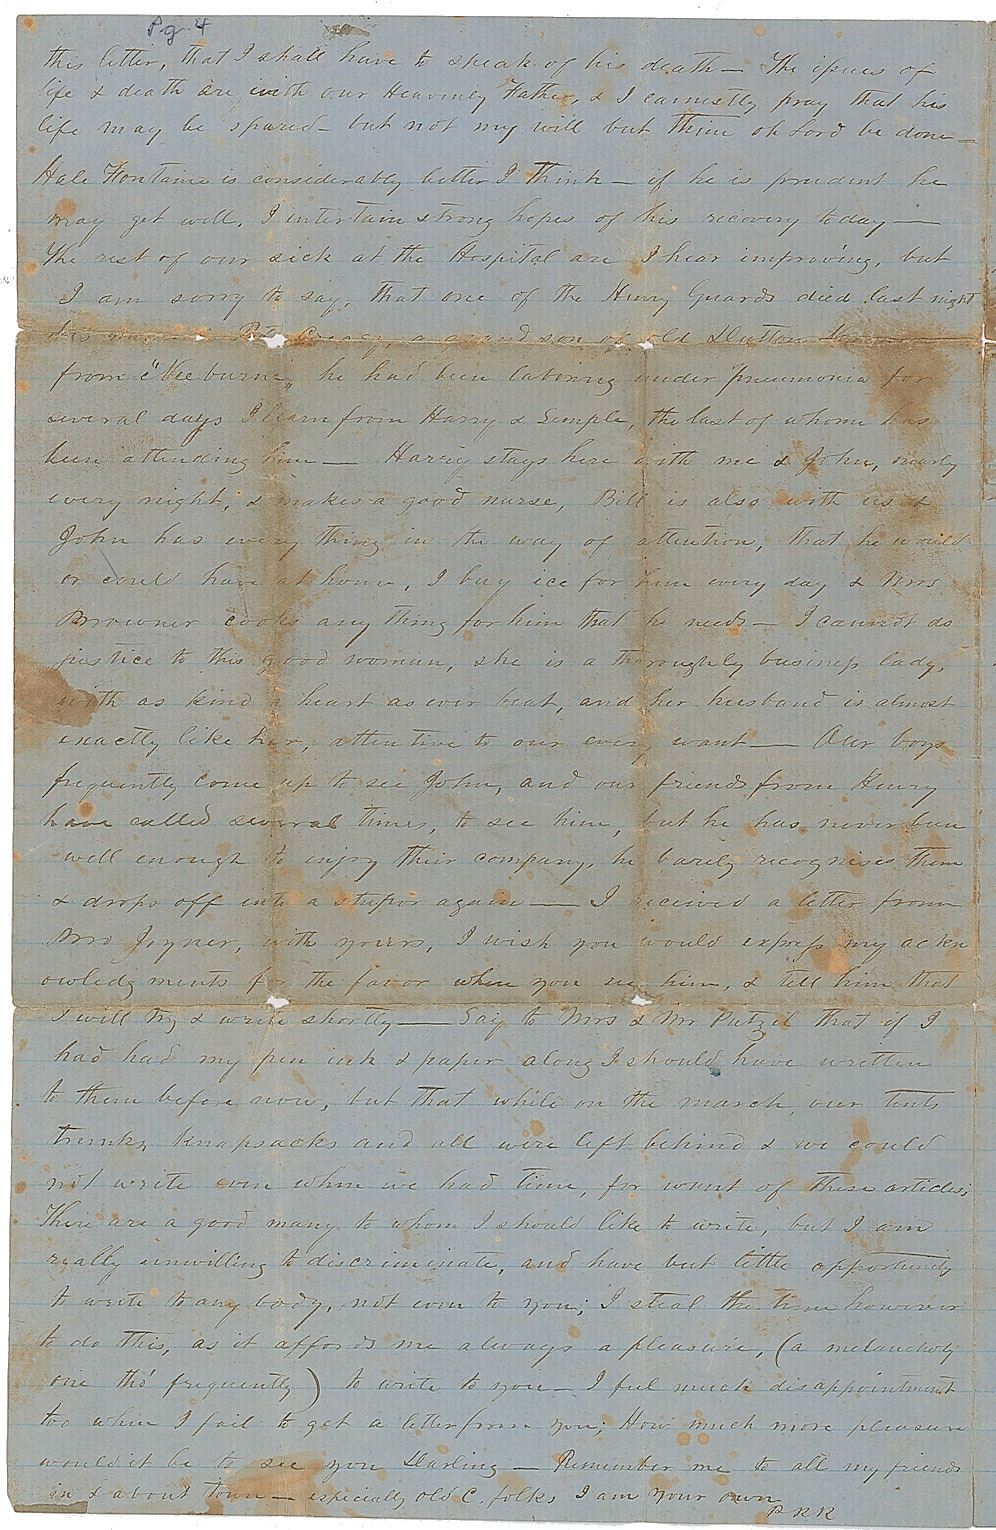 Pg. 4
this letter, that I shall have to speak of his death — The issues of
life & death are with our Heavenly Father, & I earnestly pray that his
life may be spared — but not my will but Thine oh Lord be done —
Hale Fontaine is considerably better I think — if he is prudent he
may get well, I intertain strong hopes of his recovery today —
The rest of our sick at the Hospital are I hear improving, but
I am sorry to say, that one of the Henry Guards died last night
his name is a grand son of old Dutton
from "Vee burne" he had been laboring under pneumonia for
several days I learn from Harry & Semple, the last of whom has
been attending him — Harry stays here with me & John, nearly
every night, & makes a good nurse, Bill is also with us &
John has every thing in the way of attention, that he would
or could have at home, I buy ice for him every day & Mrs
Browner cooks any thing for him that he needs — I cannot do
justice to this good woman, she is a thoroughly business lady,
with as kind a heart as ever beat, and her husband is almost
exactly like her, attentive to our every want — Our boys
frequently come up to see John, and our friends from Henry
have called several times, to see him, but he has never been
well enough to injoy their company, he barely recognises them
& drops off into a stupor again — I received a letter from
Mrs Joyner, with yours, I wish you would express my ackn
owledgments for the favor when you see him, & tell him that
I will try & write shortly — Say to Mrs & Mr Putzel that if I
had had my pen ink & paper along I should have written
to them before now, but that while on the march, our tents
trunks, knapsacks and all were left behind & we could
not write even when we had time, for want of these articles;
There are a good many to whom I should like to write, but I am
really unwilling to discriminate, and have but little opportunity
to write to any body, not even to you; I steal the time however
to do this, as it affords me always a pleasure, (a melancholy
one tho' frequently) to write to you — I feel much disappointment
too when I fail to get a letter from you; How much more pleasure
would it be to see you Darling — Remember me to all my friends
in & about town — especially old C. folks I am your own
P R R